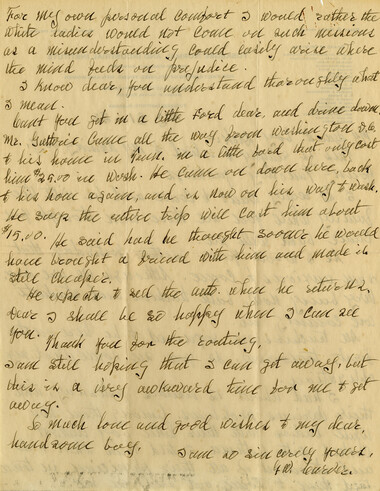 For my own personal comfort I would rather the
white ladies would not come on such missions
as a misunderstanding could easily arise where
the mind feeds on prejudice.
I know dear, you understand thoroughly what
I mean.
Cant you get in a little Ford dear, and drive down.
Mr. Guthrie came all the way from Washington D.C.
to his home in Tenn. in a little Ford that only cost
him $25.00 in Wash. He came on down here, back
to his home again, and is now on his way to Wash.
He says the entire trip will cost him about
$15.00. He said had he thought sooner he would
have brought a friend with him and made it
still cheaper.
He expects to sell the auto. when he returns.
Dear I shall be so happy when I can see
you.
Thank you for the routing,
I am still hoping that I can get away, but
this is a very awkward time for me to get
away.
So much love and good wishes to my dear,
handsome boy.
I am so sincerely yours,
G.W. Carver.